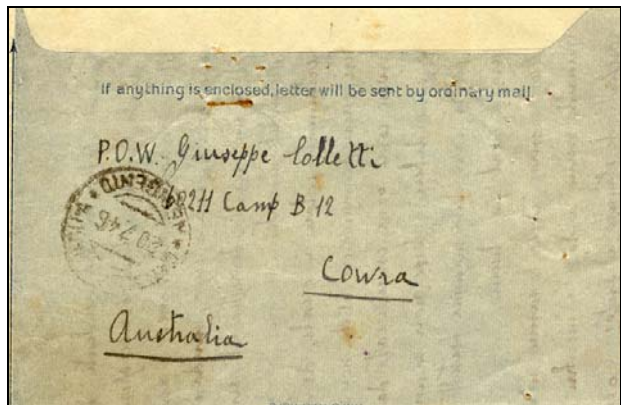 If anything is enclosed, letter will be sent by ordinary mail.
P.O.W. Giuseppe Colletti
Camp B 12
Cowra
Australia
20.7.46